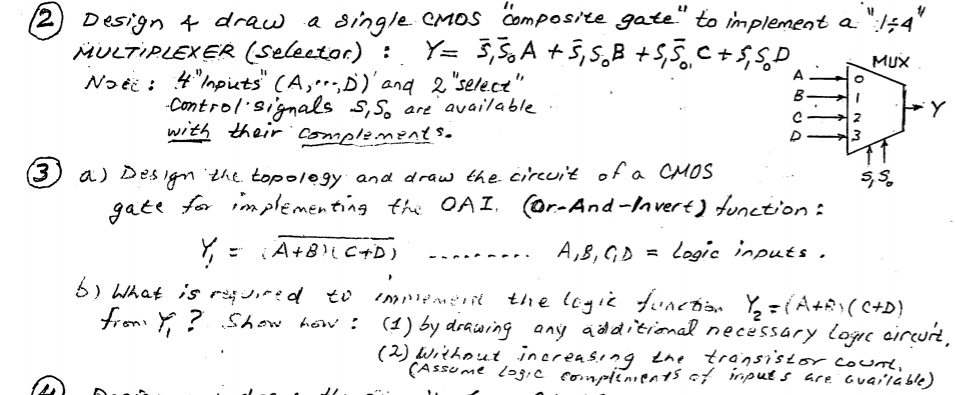 ② Design & draw a single CMOS "Composite gate" to implement a "1÷4"
MULTIPLEXER (Selector) : Y = S̄₁S̄₀A + S̄₁S₀B + S₁S̄₀C + S₁S₀D
Note : 4 "Inputs" (A,...,D) and 2 "select"
Control signals S₁S₀ are available
with their complements.
MUX
A 0
B 1
C 2
D 3
Y
S₁ S₀
③ a) Design the topology and draw the circuit of a CMOS
gate for implementing the OAI. (Or-And-Invert) function :
Y₁ = (A+B)(C+D) --------- A,B,C,D = Logic inputs .
b) What is required to implement the logic function Y₂ = (A+B)(C+D)
from Y₁ ? Show how : (1) by drawing any additional necessary logic circuit,
(2) Without increasing the transistor count,
(Assume logic compliments of inputs are available)